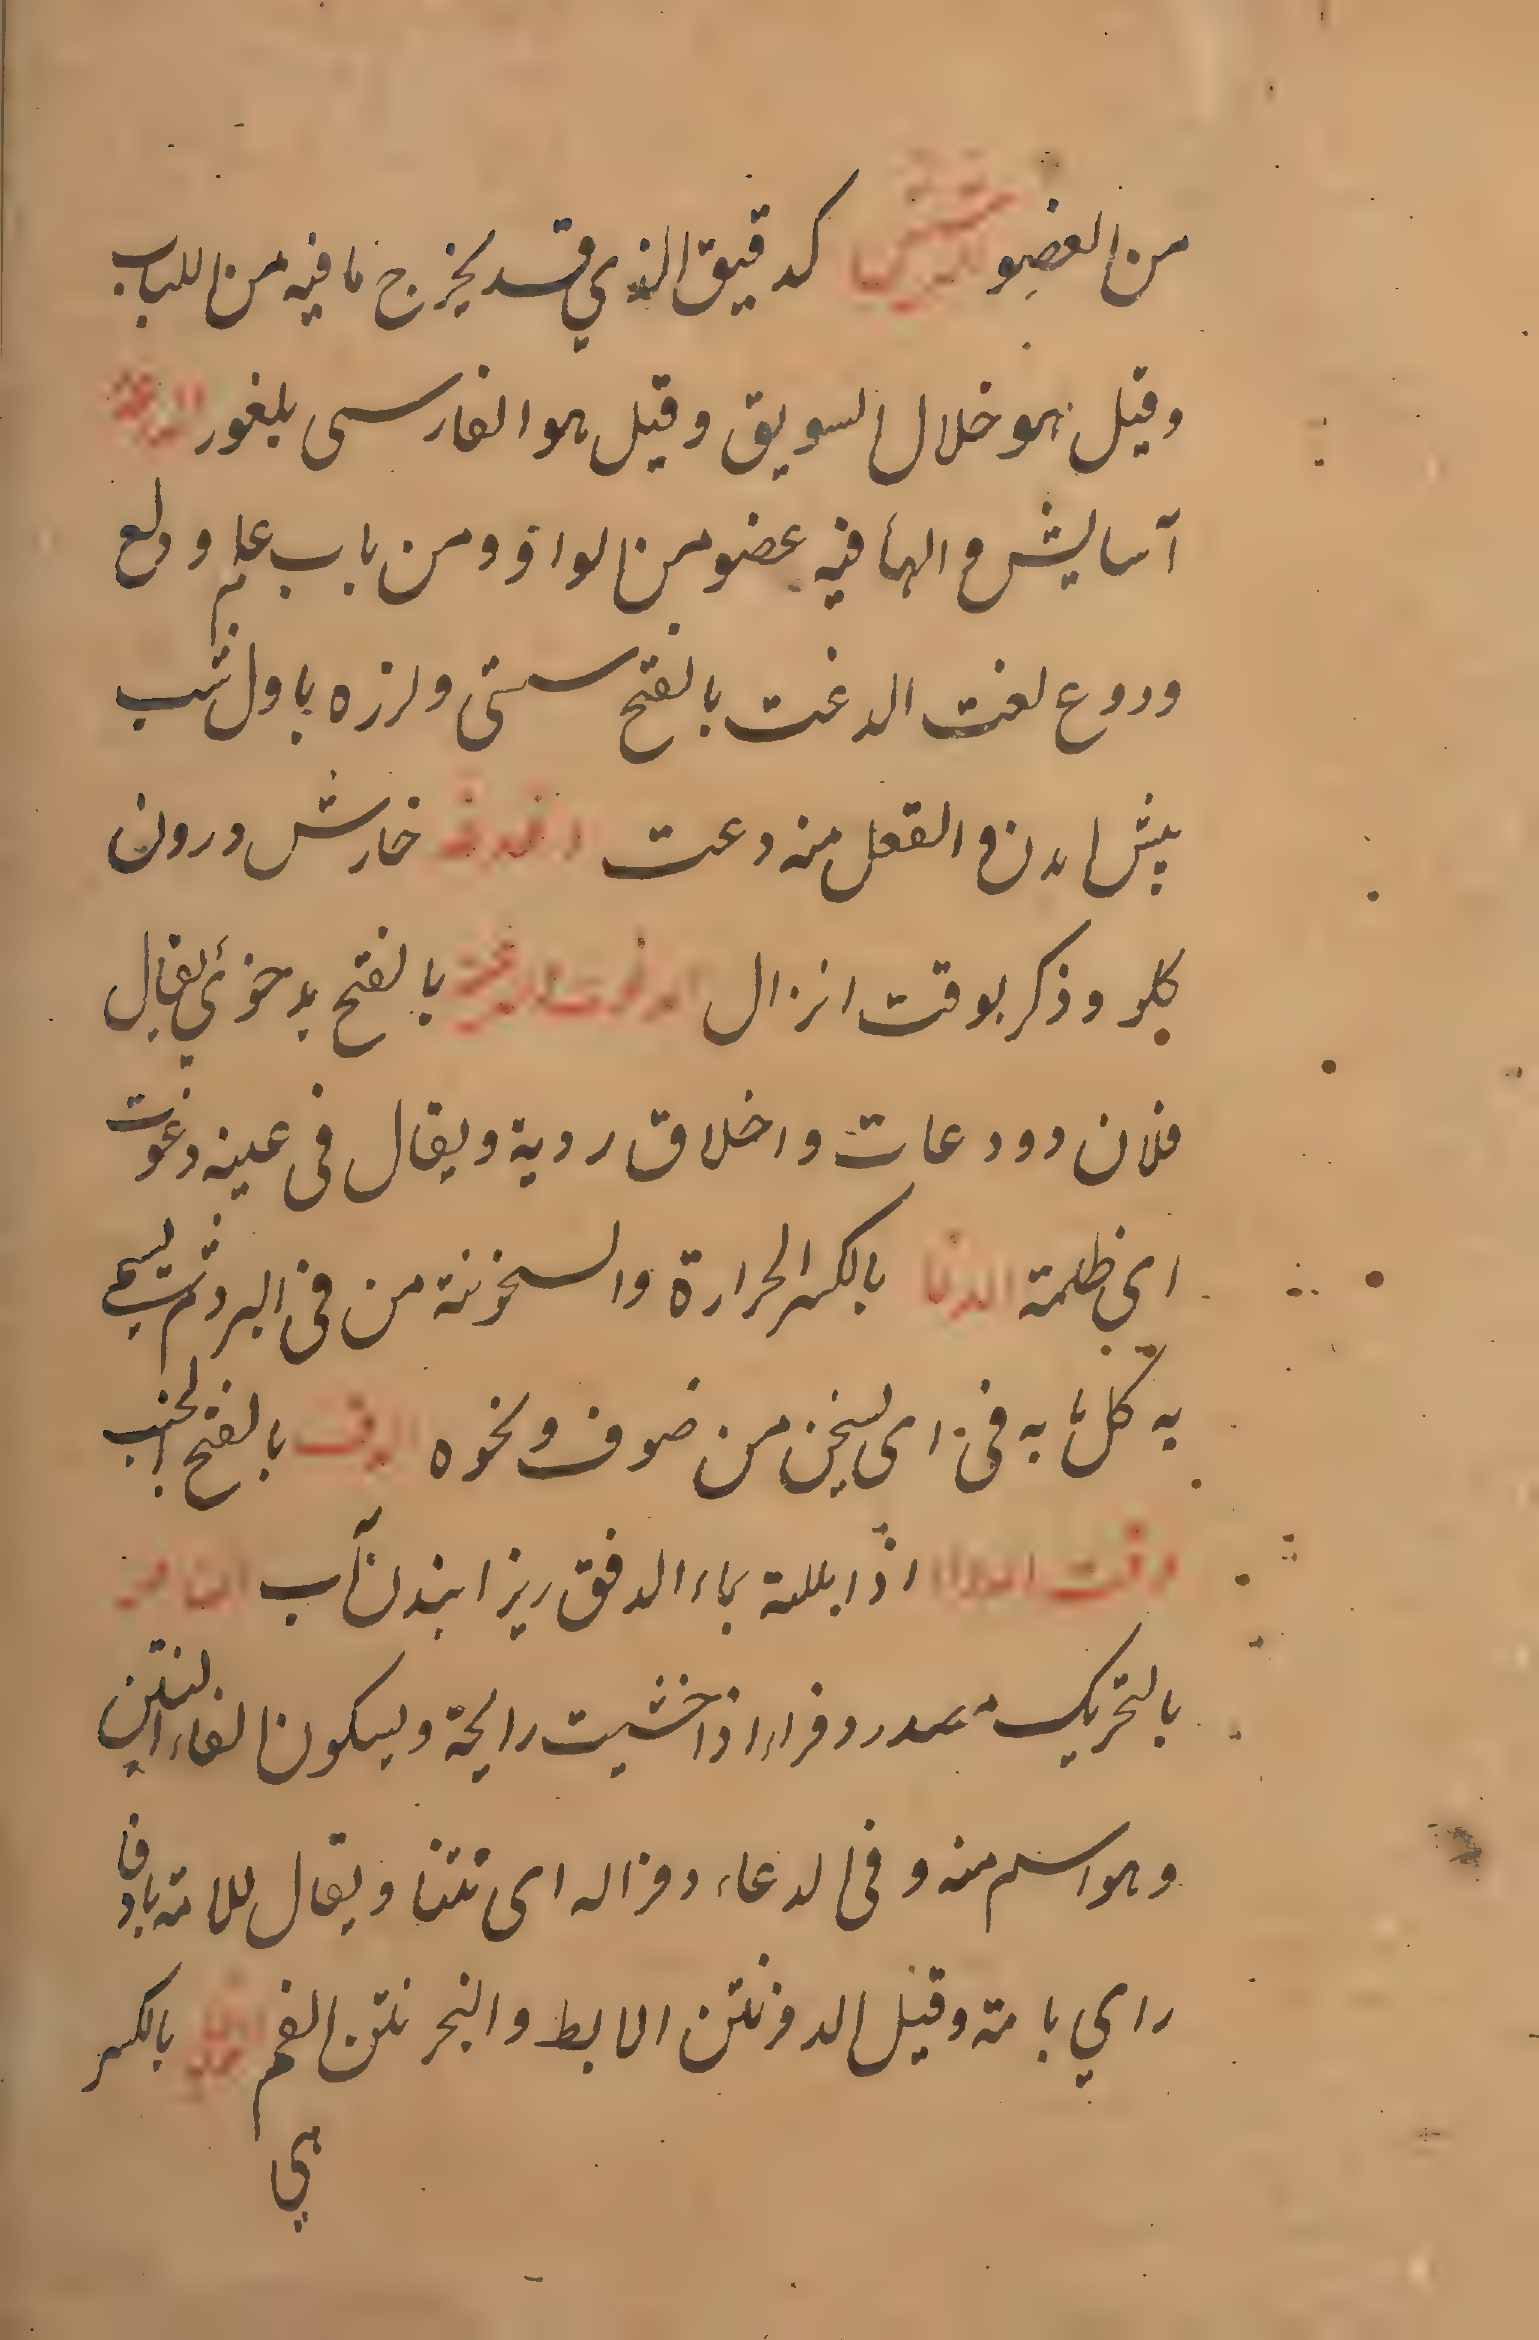 من العضو كدقيق الذي قد يخرج ما فيه من اللباب
وقيل هو خلال السويق وقيل هو الفارسى بلغور
آسايش و الهأ فيه عضو من الواو ومن باب علم و دلع
وروع لغت الدغت بالفتح سستى ولرزه باول شب
پيش ا و الفعل منه دعت خارش درون
كلو و ذكر بوقت انزال بالفتح بدخوئي يقال
فلان دو دعات و اخلاق ردية ويقال فى عينه دغوت
اى ظلمة الدفا بالكسر الحرارة والسخونة من فى البرد ثم يسمى
به كل به فى اى يسخن من ضوف ونحوه الدف بالفتح الجنب
اذا بللته بماء الدفق ريزانيدن آب
بالتحريك مصدر دفراء اذا خشيت رايحة وبسكون الفاء النتن
وهو اسم منه و فى الدعاء دفراله اى نتنا ويقال للامة يا دفا
راي يا مته وقيل الدفر نتن الابط و البخر نتن الفم بالكسر
هي